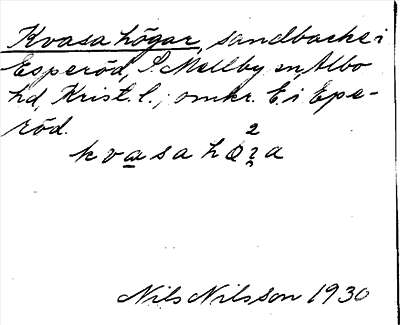 Kvasa högar, sandbacke i
Esperöd, S. Mellby sn, Albo
hd, Krist. l.; omkr. E i Epe-
röd.
kvasa hö
Nils Nilsson 1930